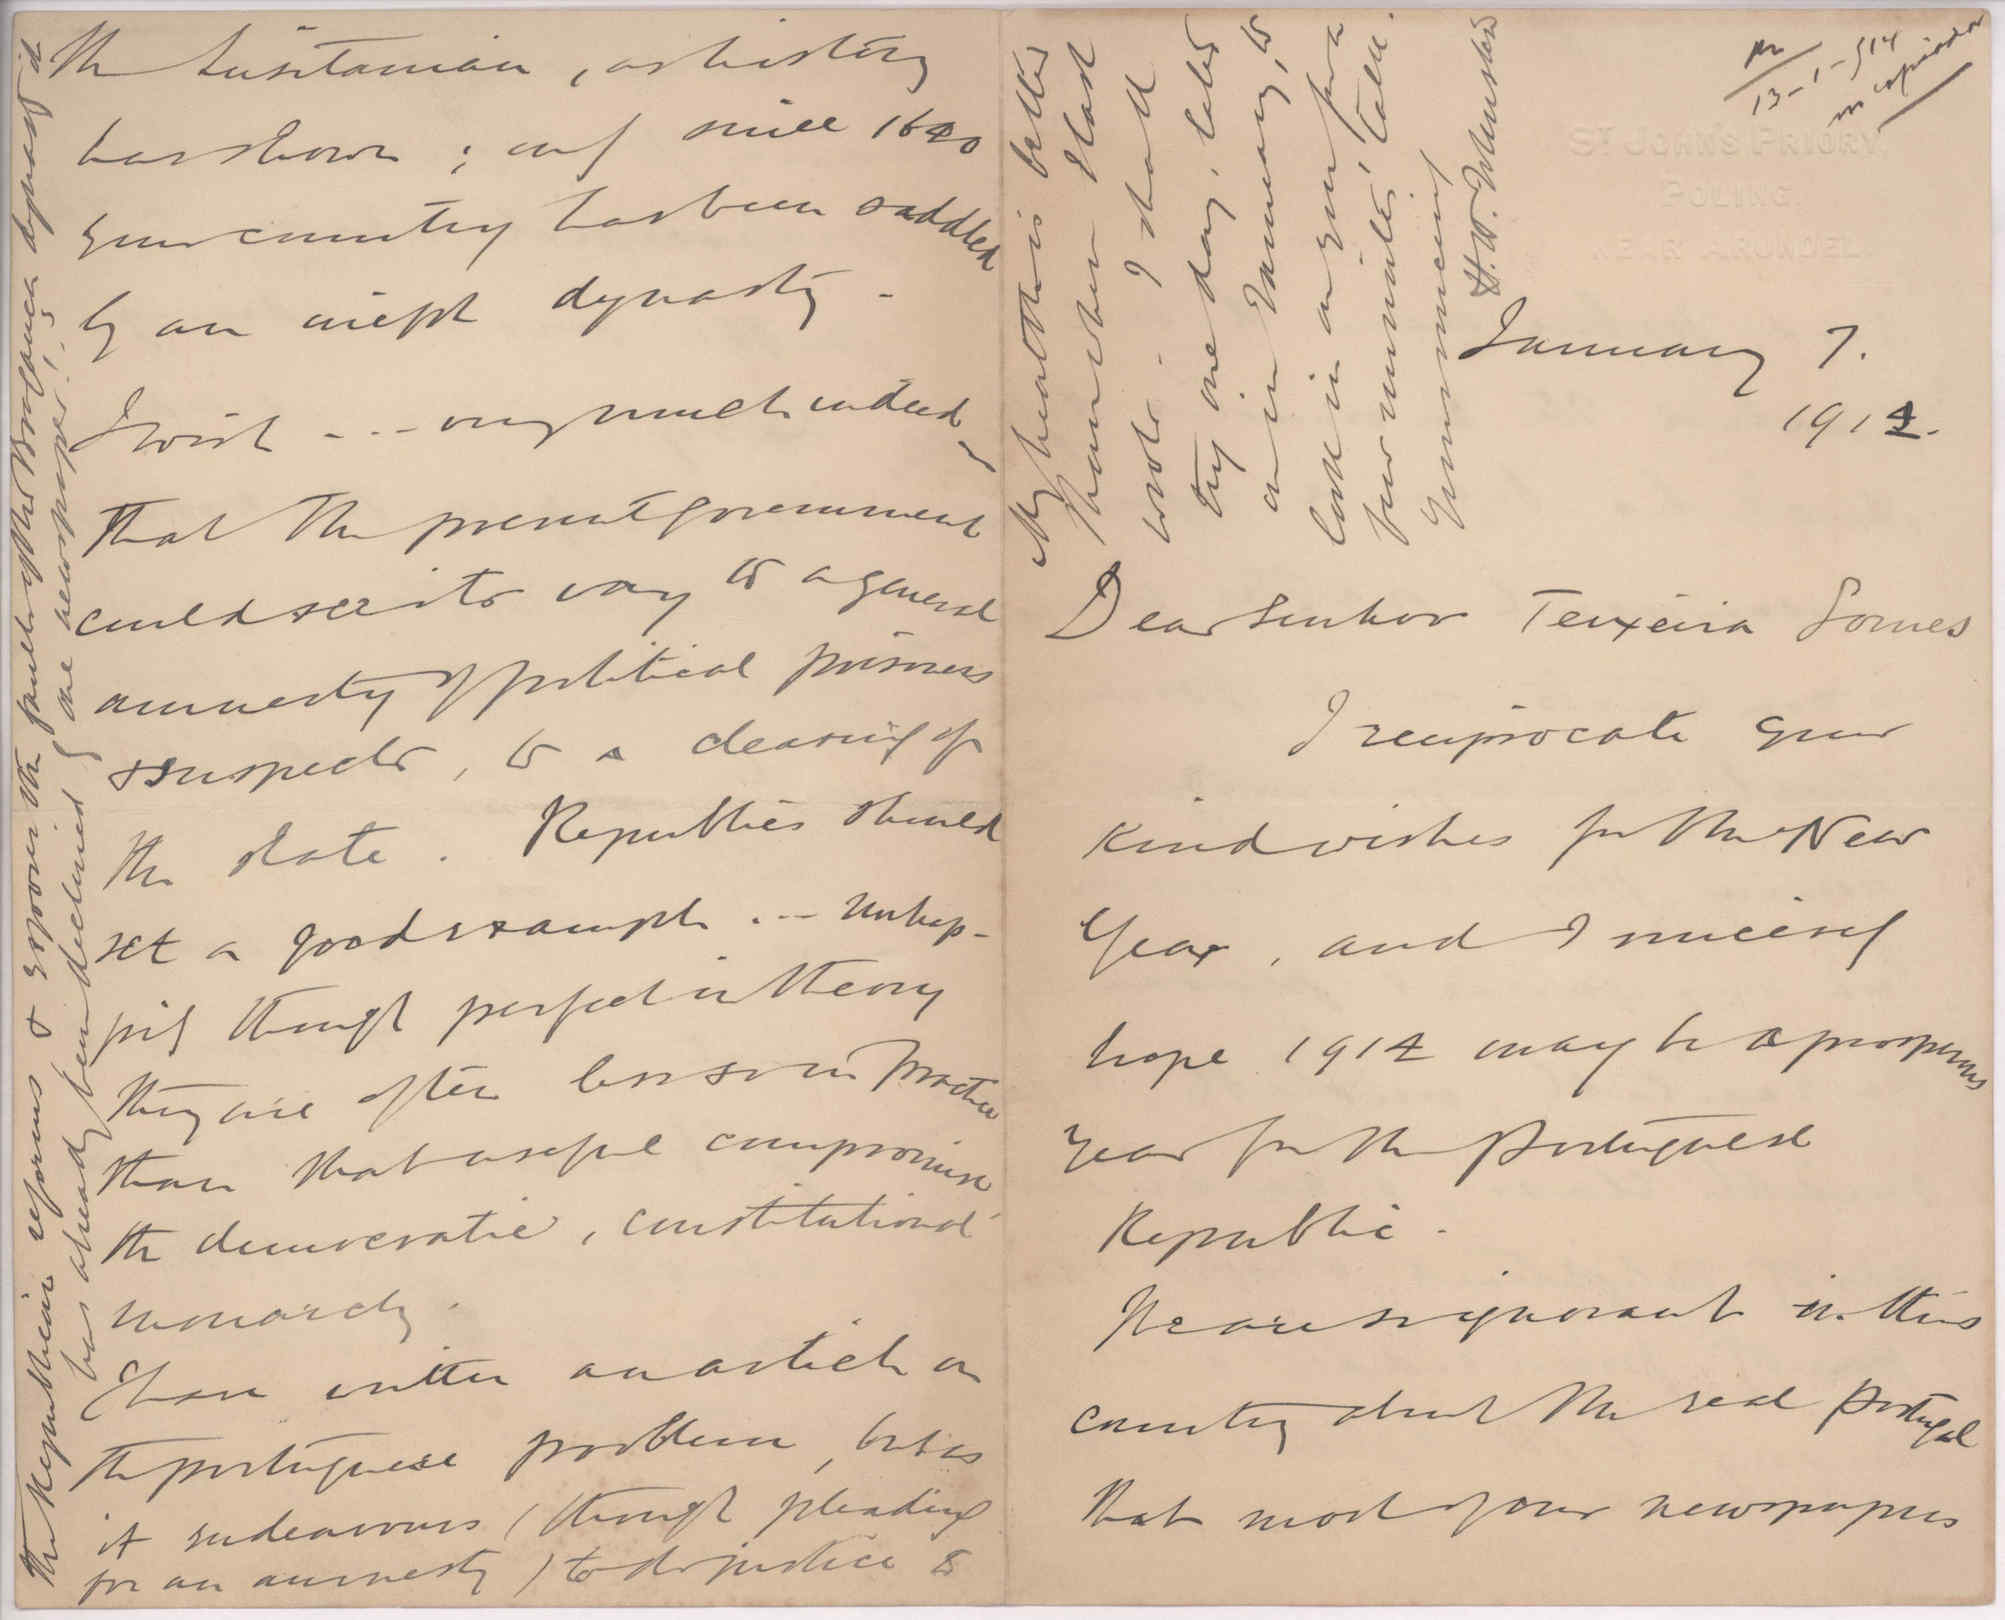 13-1-914
ST. JOHN'S PRIORY,
POLING,
NEAR ARUNDEL.
January 7.
1914.
Dear Senhor Teixeira Gomes
I reciprocate your
kind wishes for the New
Year, and I sincerely
hope 1914 may be a prosperous
year for the Portuguese
Republic.
We are so ignorant in this
country about the real Portugal
that most of our newspapers
the Lusitanian, as history
has shown; and since 1640
your country has been saddled
by an inept dynasty.
I wish --- very much indeed,
that the present government
could see its way to a general
amnesty of political prisoners
& suspects, to a clearing of
the slate. Republics should
set a good example --- Unhap-
pily though perfect in theory
they are often less so in practice
than that useful compromise
the democratic, constitutional
monarchy.
I have written an article on
the portuguese problem, but as
it endeavours (though pleading
for an amnesty) to do justice to
the Republican reforms & exposes the faults of the Bragança dynasty it
has already been declined by one newspaper!
My health is better
than when I last
wrote. I shall
try one day, later
on in January, to
look in on you for a
few minutes' talk.
Yours sincerely